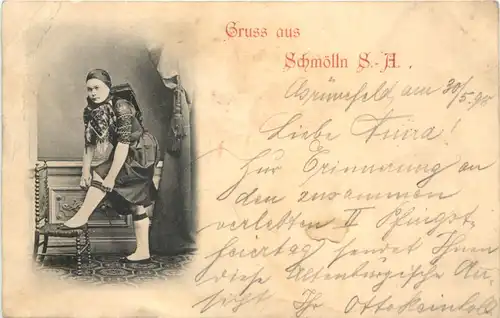 Gruss aus
Schmölln S.-A.
am 30/5. 98
Liebe !
Zur Erinnerung an
den zusammen
verlebten II Pfingst-
feiertag sendet Ihnen
diese Altenburgische An-
sicht Ihr Otto